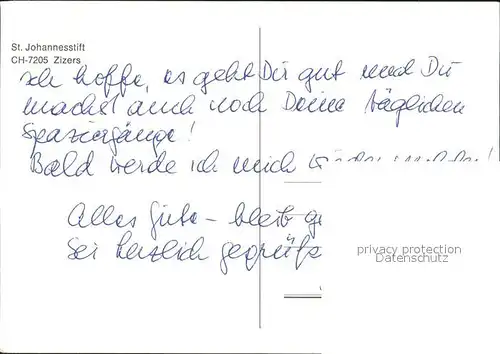 St. Johannesstift
CH-7205 Zizers
Ich hoffe, es geht Dir gut und Du
machst auch noch Deine täglichen
Spaziergänge!
Bald werde ich mich
Alles Gute - bleib
Sei herzlich gegrüßt
privacy protection
Datenschutz